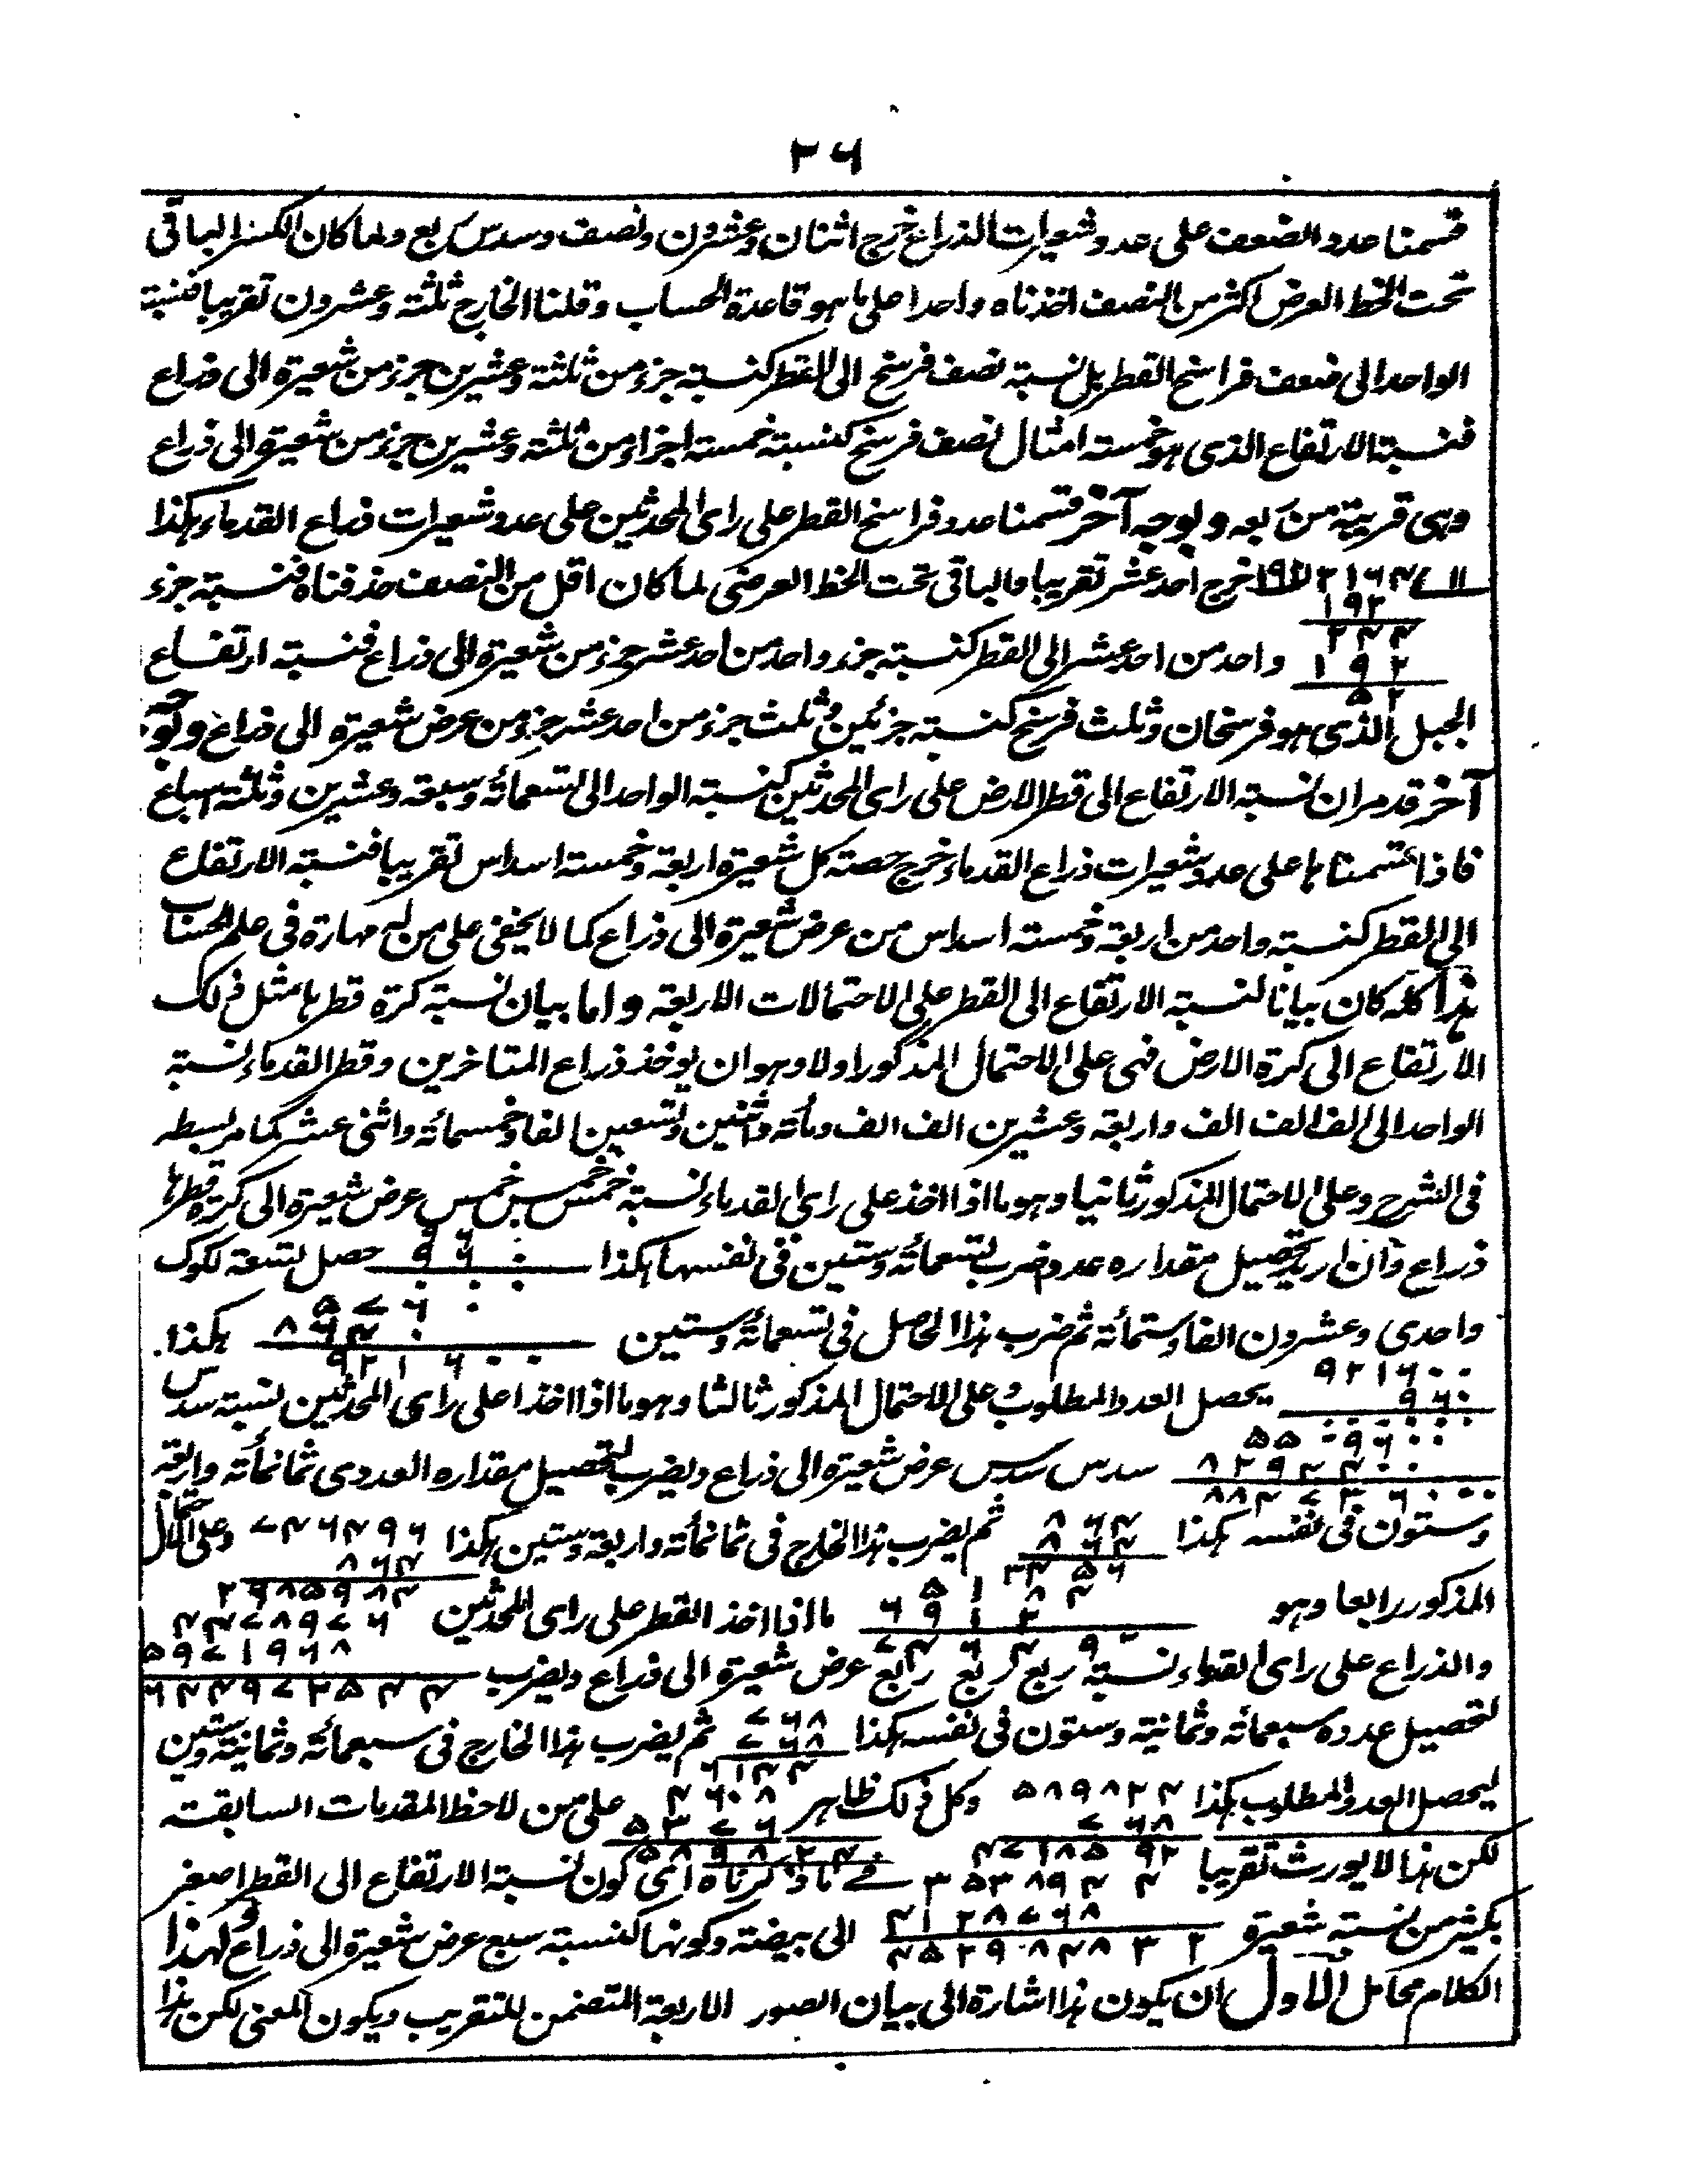 ٢٦
قسمنا عدد الضعف على عدد شعيرات الذراع خرج اثنان وعشرون ونصف وسدس ربع ولما كان الكسر الباقى
تحت الخط العرض اكثر من النصف اخذناه واحدا على ما هو قاعدة الحساب وقلنا الخارج ثلثة وعشرون تقريبا فنسبة
الواحد الى ضعف فراسخ القطر بل نسبة نصف فرسخ الى القطر كنسبة جزء من ثلثة وعشرين جزء من شعيرة الى ذراع
فنسبة الارتفاع الذى هو خمسة امثال نصف فرسخ كنسبة خمسة اجزاء من ثلثة وعشرين جزء من شعيرة الى ذراع
وهى قريبة من ربعه وبوجه آخر قسمنا عدد فراسخ القطر على راى المحدثين على عدد شعيرات ذراع القدماء هكذا
١٩٢ ٢١٦٤ ١١ خرج احد عشر تقريبا والباقى تحت الخط العرضى لما كان اقل من النصف حذفناه فنسبة جزء
١٩٢
٢٤٤
واحد من احد عشر الى القطر كنسبة جزء واحد من احد عشر جزء من شعيرة الى ذراع فنسبة ارتفاع
١٩٢
٥٢
الجبل الذى هو فرسخان وثلث فرسخ كنسبة جزئين وثلث جزء من احد عشر جزء من عرض شعيرة الى ذراع وبوجه
آخر قد مر ان نسبة الارتفاع الى قطر الارض على راى المحدثين كنسبة الواحد الى تسعمائة وسبعة وعشرين وثلثة اسباع
فاذا قسمناها على عدد شعيرات ذراع القدماء خرج حصة كل شعيرة اربعة وخمسة اسداس تقريبا فنسبة الارتفاع
الى القطر كنسبة واحد من اربعة وخمسة اسداس من عرض شعيرة الى ذراع كما لا يخفى على من له مهارة فى علم الحساب
هذا كله كان بيانا لنسبة الارتفاع الى القطر على الاحتمالات الاربعة واما بيان نسبة كرة قطرها مثل ذلك
الارتفاع الى كرة الارض فهى على الاحتمال المذكور اولا وهو ان يوخذ ذراع المتاخرين وقطر القدماء نسبة
الواحد الى الف الف الف واربعة وعشرين الف الف ومائة واثنين وتسعين الفا وخمسمائة واثنى عشر كما مر بسطه
فى الشرح وعلى الاحتمال المذكور ثانيا وهو ما اذا اخذ على راى القدماء نسبة خمس خمس خمس عرض شعيرة الى كرة قطرها
ذراع وان اريد تحصيل مقداره عدد ضرب تسعمائة وستين فى نفسها هكذا ٩٦٠ حصل تسعة لكوك
٥٧٦
واحدى وعشرون الفا وستمائة ثم ضرب هذا الحاصل فى تسعمائة وستين ٨٦٤ هكذا
٩٢١٦٠٠
٩٢١٦٠٠
٩٦٠
يحصل العدد المطلوب وعلى الاحتمال المذكور ثالثا وهو ما اذا اخذا على راى المحدثين نسبة سدس
٥٥٢٩٦٠٠
٨٢٩٤٤٠٠
سدس سدس عرض شعيرة الى ذراع ويضرب لتحصيل مقداره العددى ثمانمائة واربعة
٨٨٤٧٣٦٠٠٠
وستون فى نفسه هكذا ٨٦٤ ثم يضرب هذا الخارج فى ثمانمائة واربعة وستين هكذا ٧٤٦٤٩٦ وعلى الاحتمال
٨٦٤ ٨٦٤
٣٤٥٦ ٢٩٨٥٩٨٤
المذكور رابعا وهو ٥١٨٤ ما اذا اخذ القطر على راى المحدثين ٤٤٧٨٩٧٦
٦٩١٢
٧٤٦٤٩٦ ٥٩٧١٩٦٨
والذراع على راى القدماء نسبة ربع ربع ربع عرض شعيرة الى ذراع ويضرب ٦٤٤٩٧٢٥٤٤
لتحصيل عدده سبعمائة وثمانية وستون فى نفسه هكذا ٧٦٨ ثم يضرب هذا الخارج فى سبعمائة وثمانية وستين
٧٦٨
٦١٤٤
ليحصل العدد المطلوب هكذا ٥٨٩٨٢٤ وكل ذلك ظاهر ٤٦٠٨ على من لاحظ المقدمات السابقة
٧٦٨ ٥٣٧٦
لكن هذا لا يورث تقريبا ٤٧١٨٥٩٢ ٥٨٩٨٢٤
٣٥٣٨٩٤٤ فى ما ذكرناه اى كون نسبة الارتفاع الى القطر اصغر
بكثير من نسبة شعيرة ٤١٢٨٧٦٨ الى بيضة وكونها كنسبة سبع عرض شعيرة الى ذراع ولهذا
٤٥٢٩٨٤٨٣٢
الكلام محامل الاول ان يكون هذا اشارة الى بيان الصور الاربعة المتضمن للتقريب ويكون المعنى لكن هذا